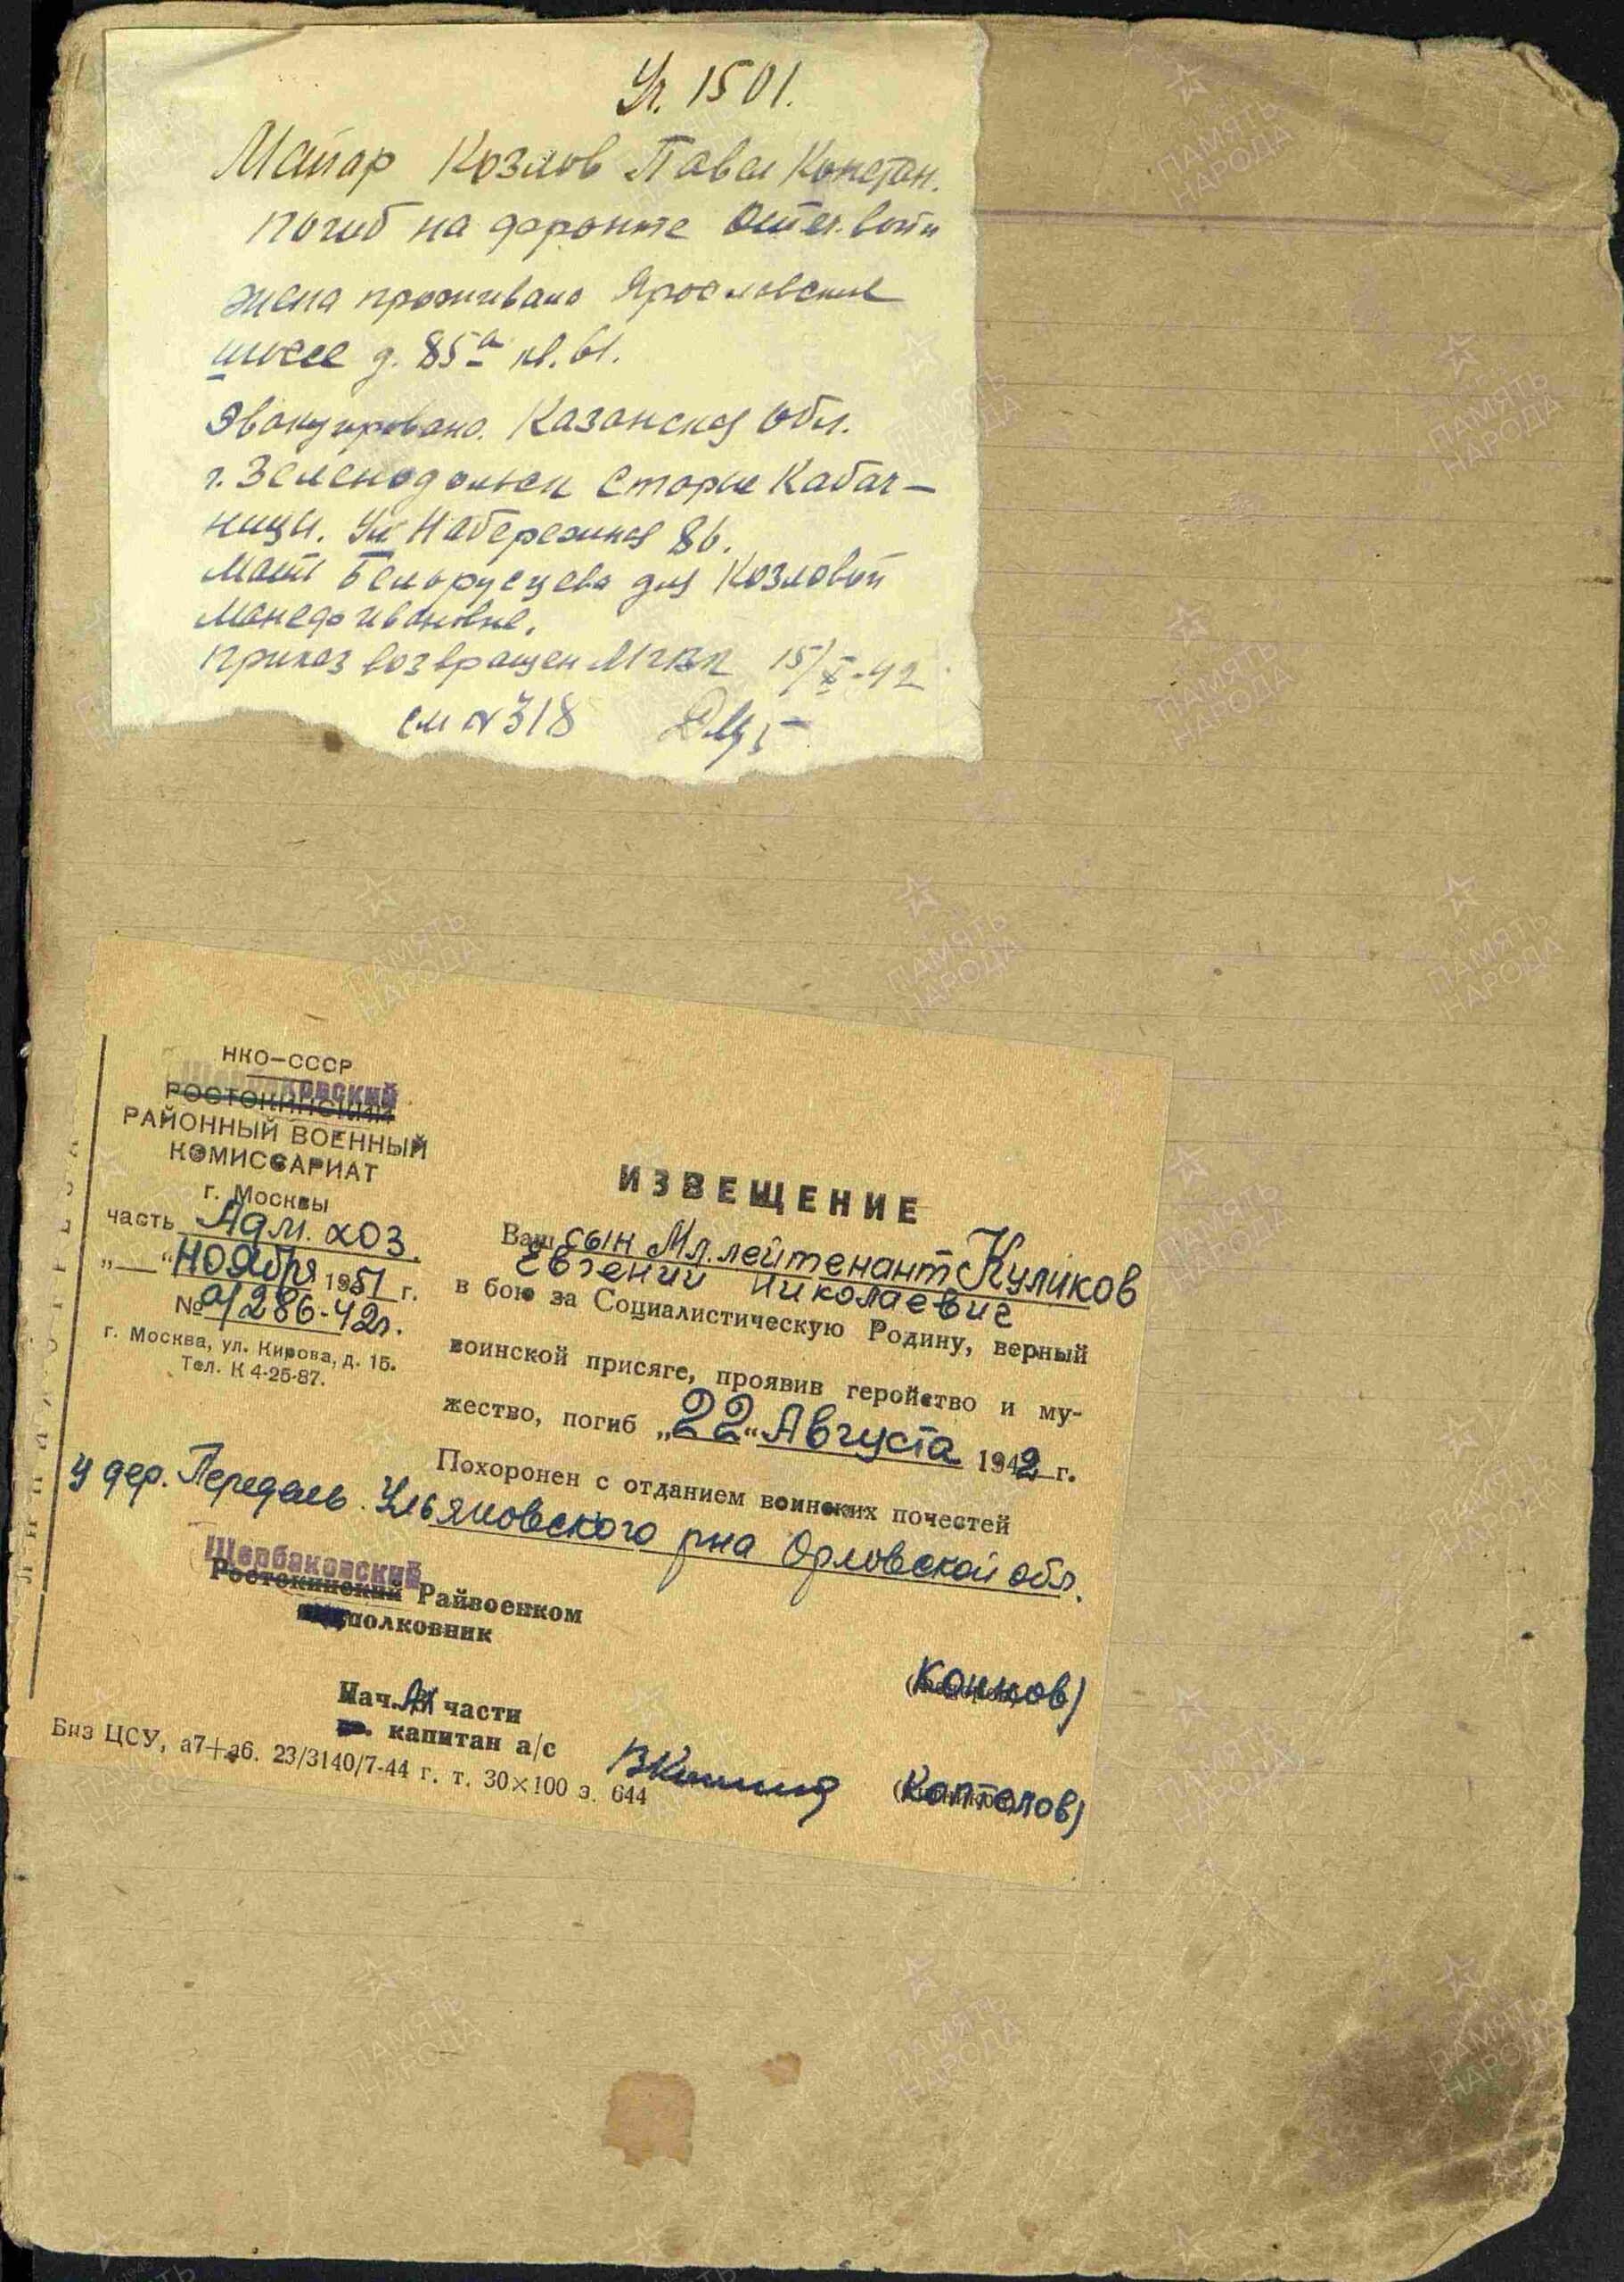 Уг. 1501.
Майор Козлов Павел Констан.
погиб на фронте Отеч. войн
жена проживала Ярославские
шоссе д. 85а кв. 61.
Эвакуирована. Казанская обл.
г. Зеленодольск Старые Кабач-
ницы. Ул Набережная 86.
Белорусцева для Козловой
Ивановне.
Приказ возвращен МГВК 15/X-42
см N 318
НКО–СССР
Щербаковский
РОСТОКИНСКИЙ
РАЙОННЫЙ ВОЕННЫЙ
КОМИССАРИАТ
г. Москвы
часть Адм. хоз.
„ “ Ноября 1951 г.
№ 9/286-42г.
г. Москва, ул. Кирова, д. 15.
Тел. К 4-25-87.
ИЗВЕЩЕНИЕ
Ваш сын Мл. лейтенант Куликов
Евгений Николаевич
в бою за Социалистическую Родину, верный
воинской присяге, проявив геройство и му-
жество, погиб „22“ Августа 1942 г.
Похоронен с отданием воинских почестей
у дер. Передель Ульяновского рна Орловской обл.
Щербаковский
Ростокинский Райвоенком
полковник
(Конков)
Нач. части
капитан а/с
(Коптелов)
Биз ЦСУ, а7+а6. 23/3140/7-44 г. т. 30×100 з. 644
ПАМЯТЬ НАРОДА